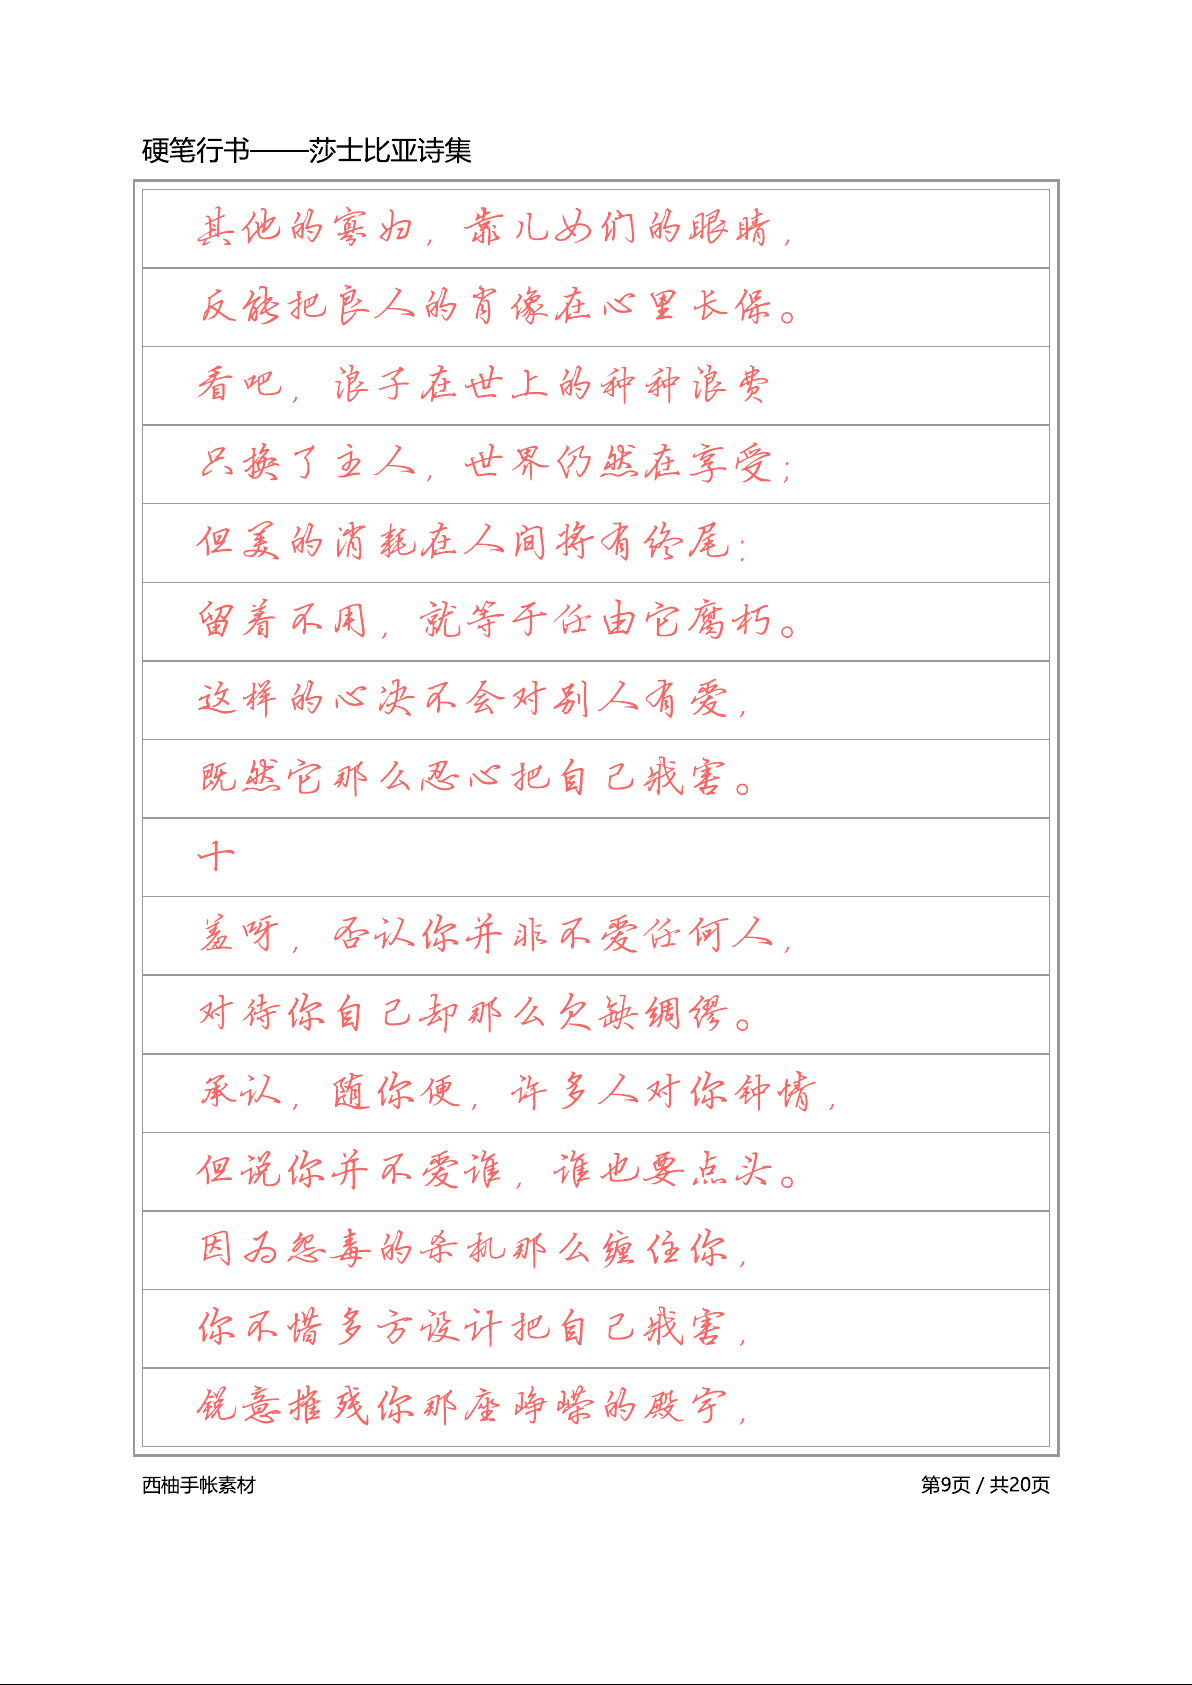 硬笔行书——莎士比亚诗集
其他的寡妇，靠儿女们的眼睛，
反能把良人的肖像在心里长保。
看吧，浪子在世上的种种浪费
只换了主人，世界仍然在享受；
但美的消耗在人间将有终尾：
留着不用，就等于任由它腐朽。
这样的心决不会对别人有爱，
既然它那么忍心把自己戕害。
十
羞呀，否认你并非不爱任何人，
对待你自己却那么欠缺绸缪。
承认，随你便，许多人对你钟情，
但说你并不爱谁，谁也要点头。
因为怨毒的杀机那么缠住你，
你不惜多方设计把自己戕害，
锐意摧残你那座峥嵘的殿宇，
西柚手帐素材
第9页 / 共20页